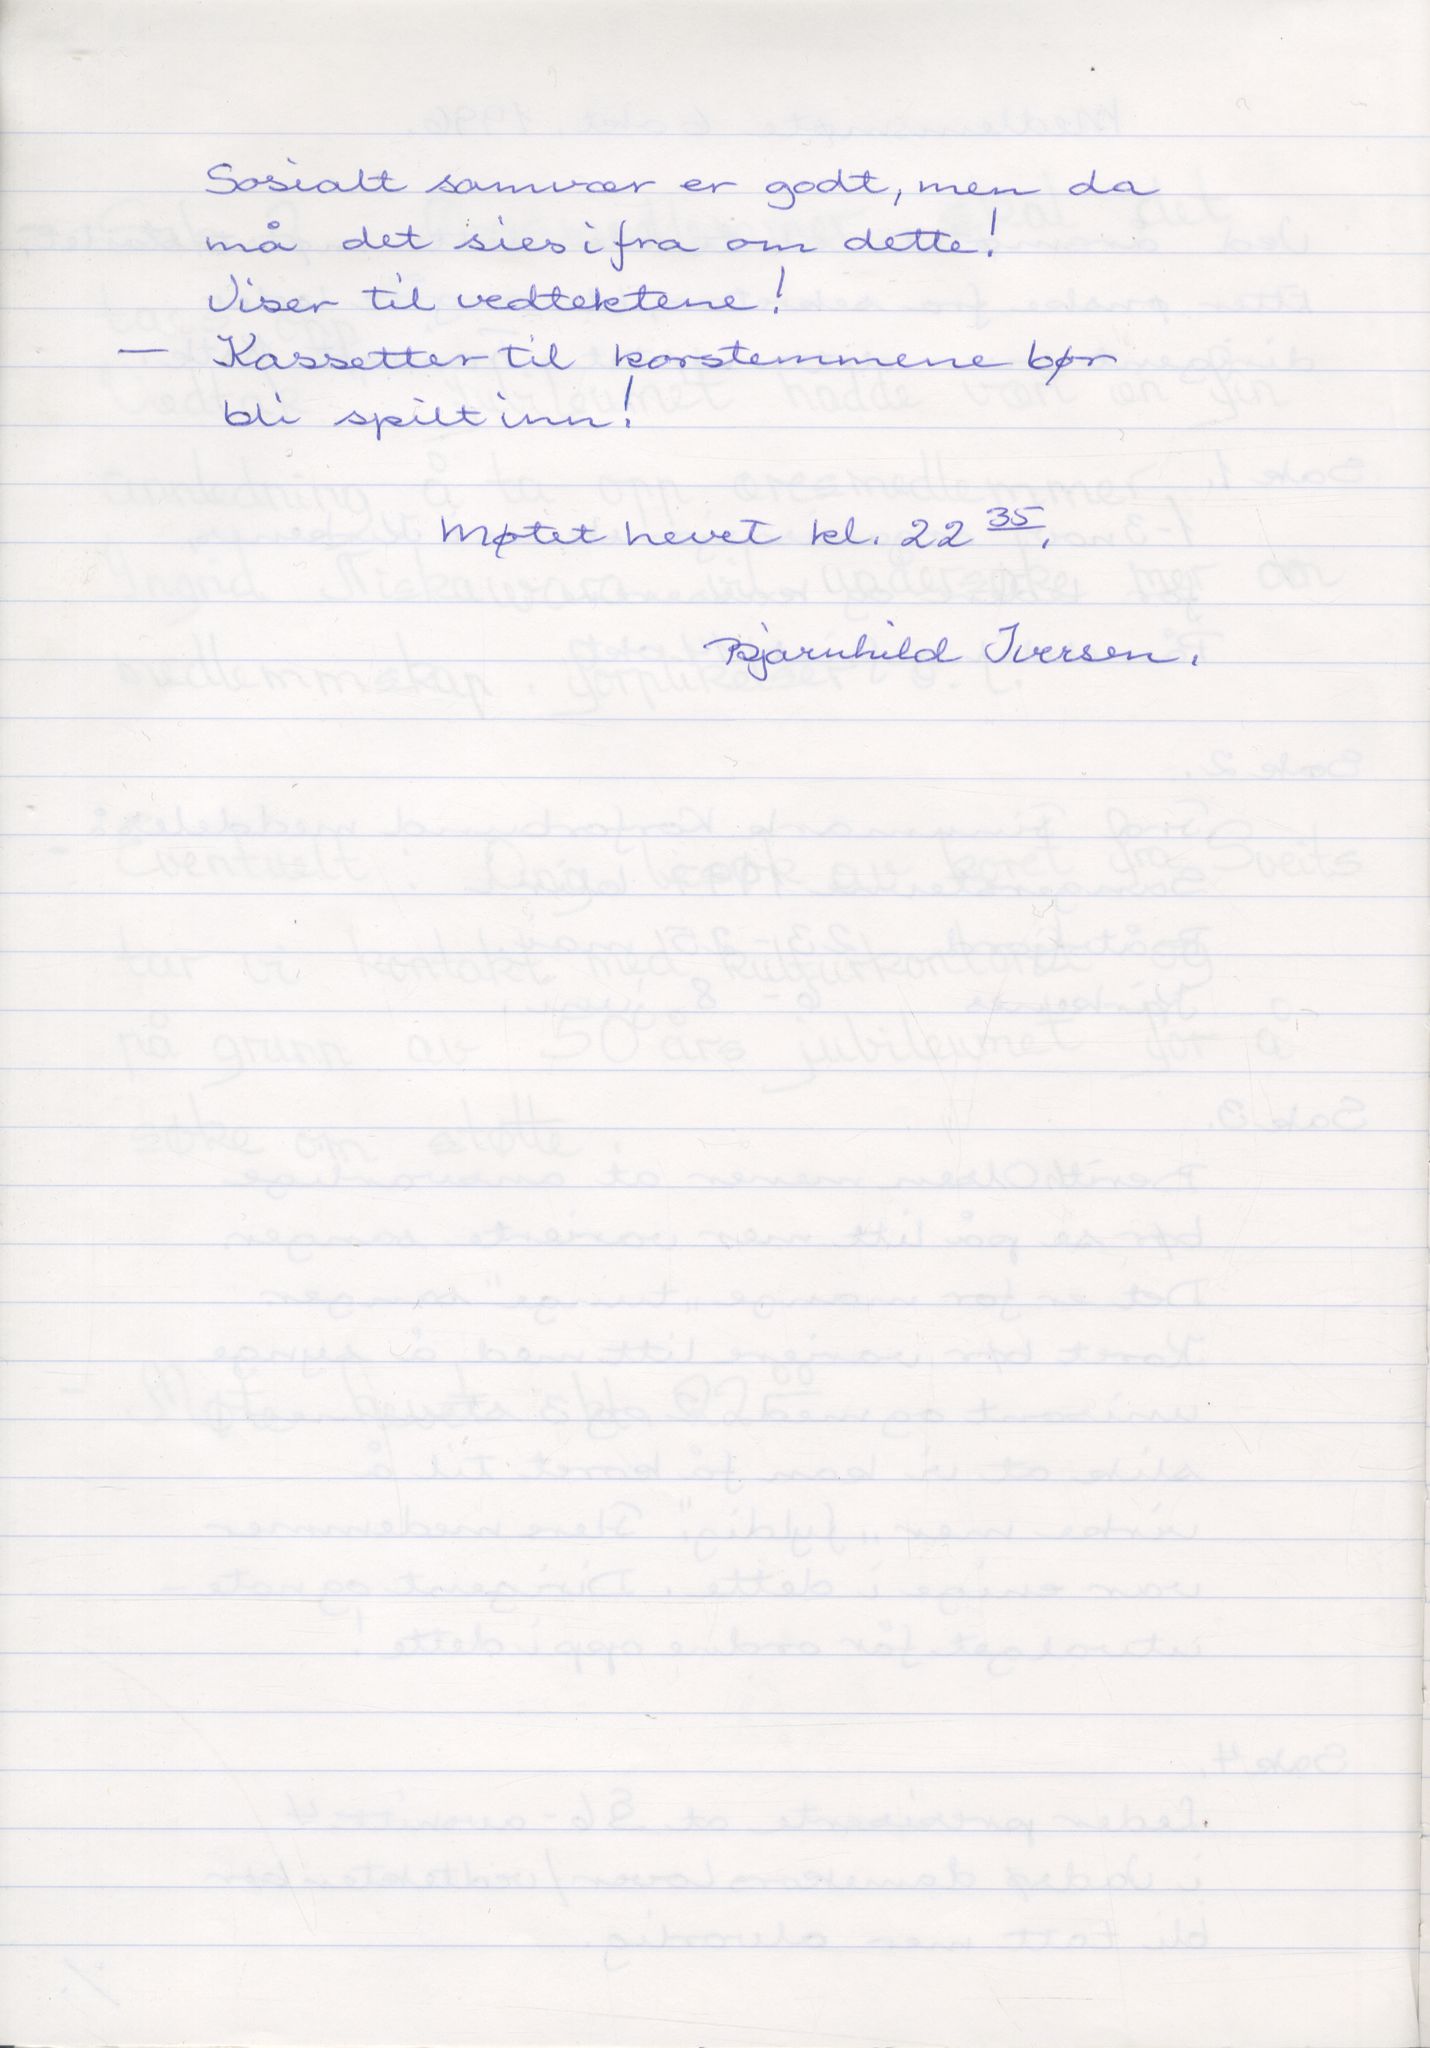 Sosialt samvær er godt, men da
må det sies ifra om dette!
Viser til vedtektene!
— Kassetter til korstemmene bør
bli spilt inn!
Møtet hevet kl. 22 35.
Bjarnhild Iversen.